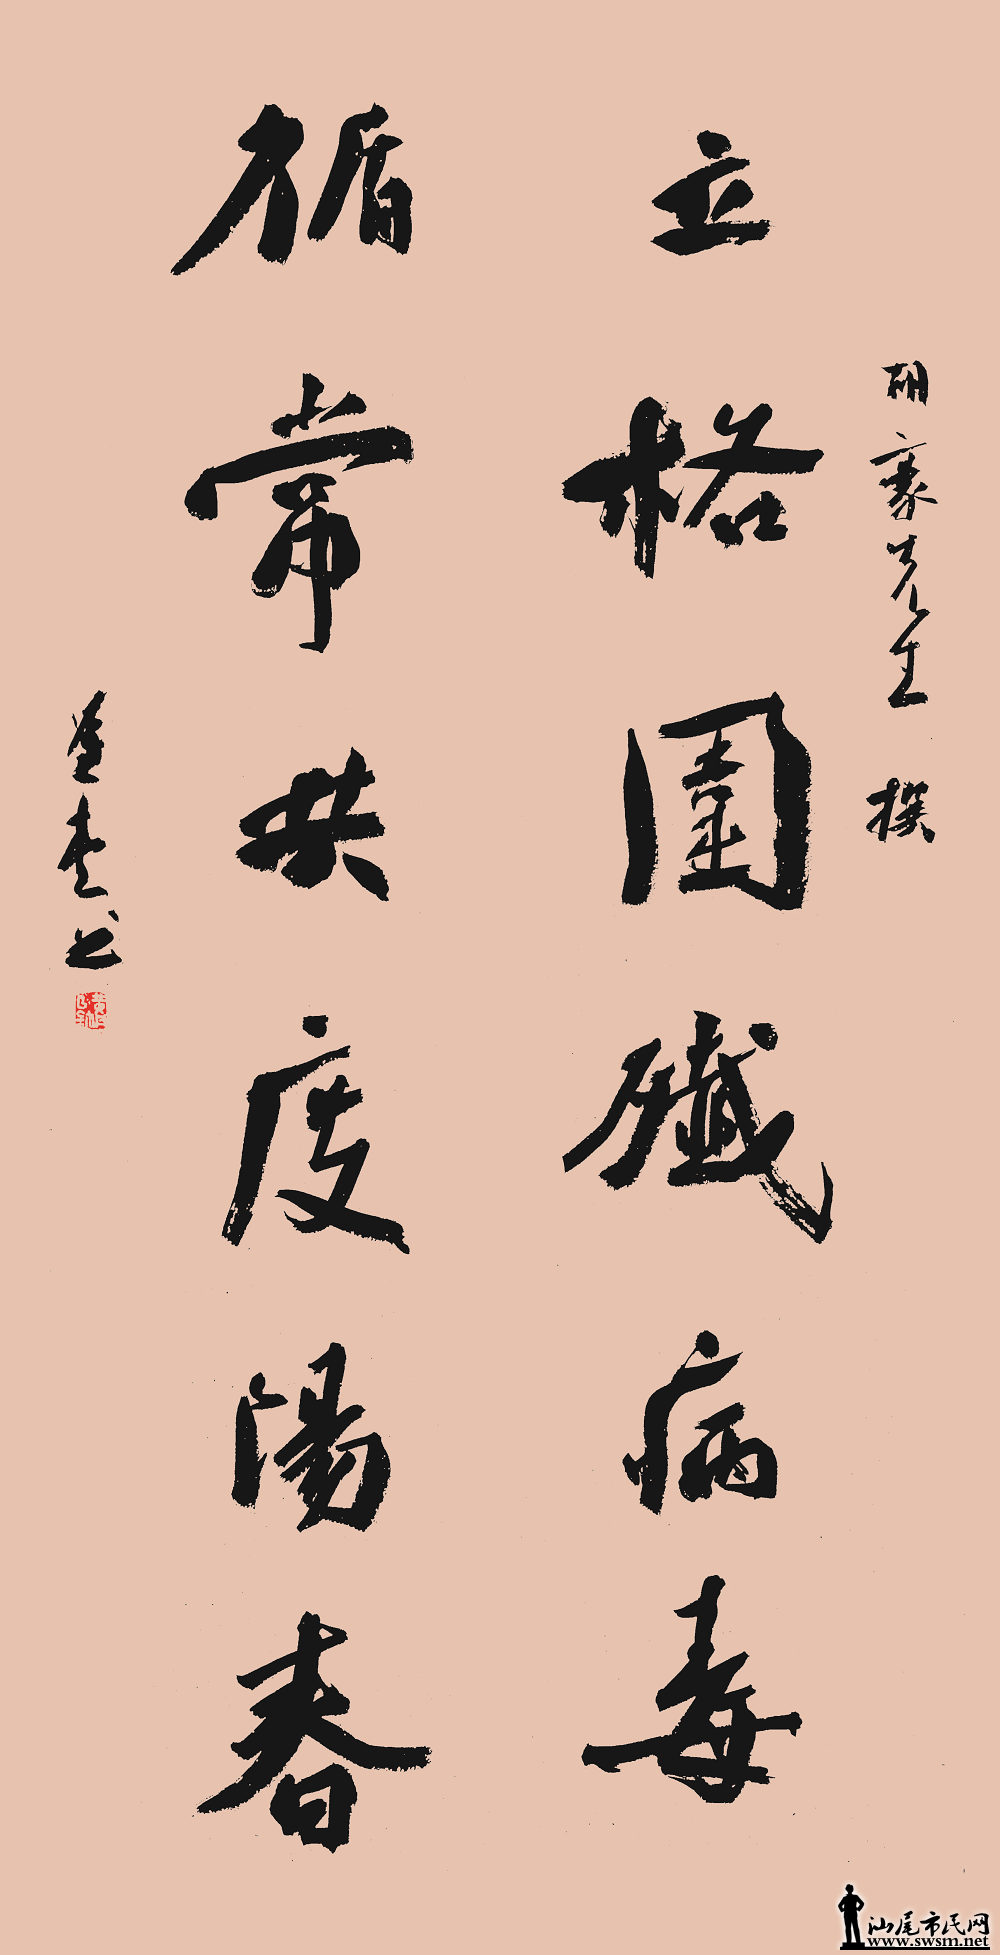 胡豪先生 撰
立格围歼病毒
循常共度陽春
書
汕尾市民网
www.swsm.net